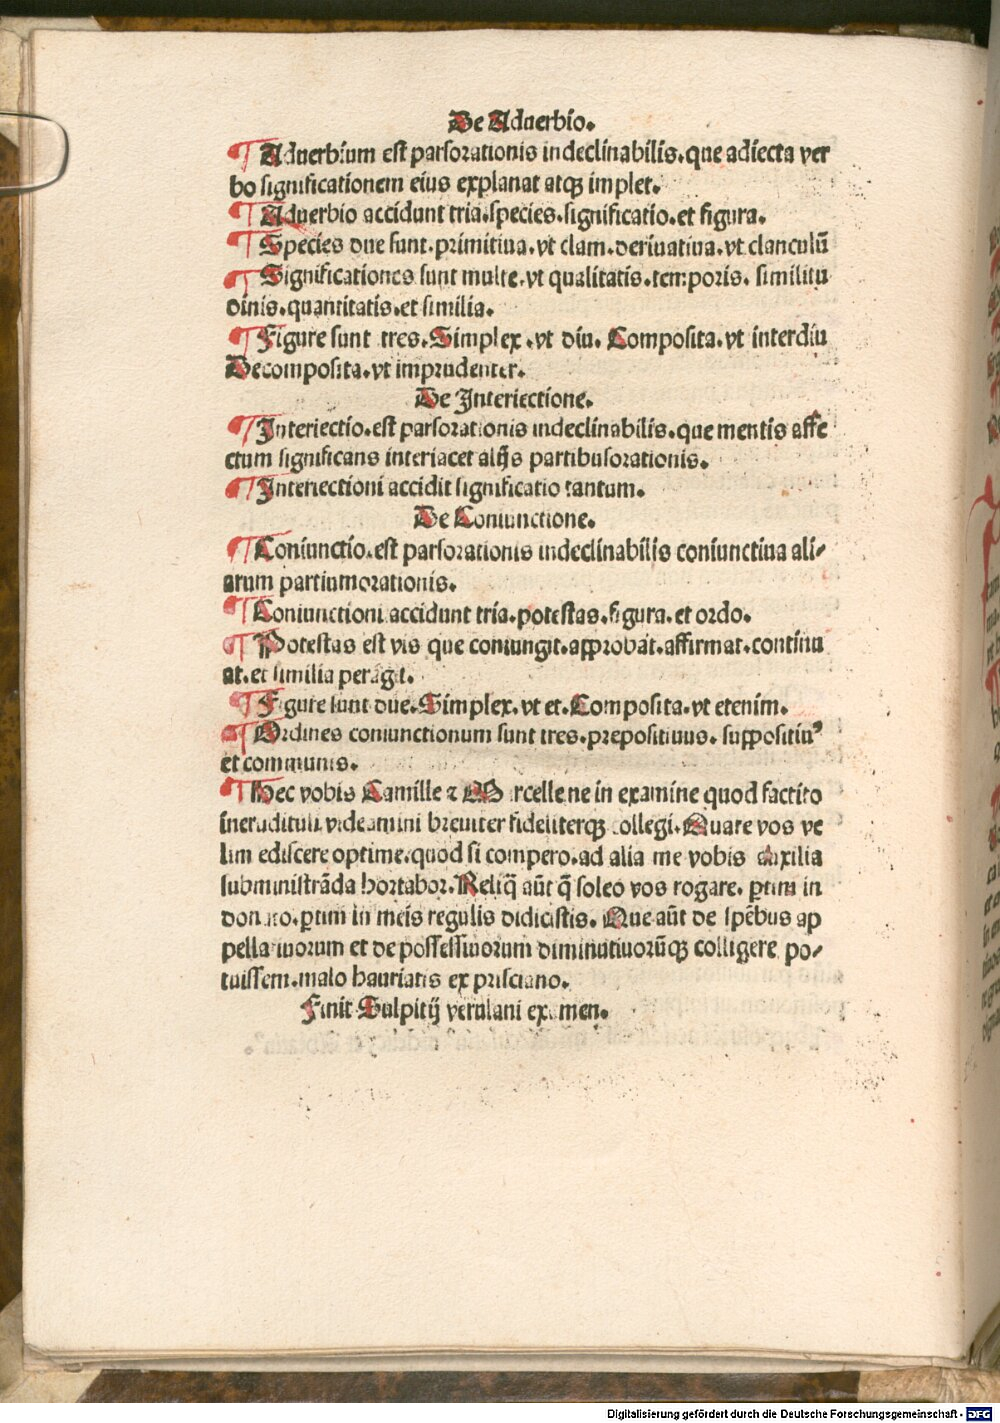 De Aduerbio.
¶ Aduerbium est parsorationis indeclinabilis.que adiecta ver
bo significationem eius explanat atqȝ implet.
¶ Aduerbio accidunt tria.species.significatio.et figura.
¶ Species due sunt.primitiua.vt clam.deriuatiua.vt clanculū
¶ Significationes sunt multe.vt qualitatis.temporis.similitu
dinis.quantitatis.et similia.
¶ Figure sunt tres.Simplex.vt diu.Composita.vt interdiu
Decomposita.vt imprudenter.
De Interiectione.
¶ Interiectio.est parsorationis indeclinabilis.que mentis affe
ctum significans interiacet alijs partibusorationis.
¶ Interiectioni accidit significatio tantum.
De Coniunctione.
¶ Coniunctio.est parsorationis indeclinabilis coniunctiua ali/
arum partiumorationis.
¶ Coniunctioni accidunt tria.potestas.figura.et ordo.
¶ Potestas est vis que coniungit.approbat.affirmat.continu
at.et similia peragit.
¶ Figure sunt due.Simplex.vt et.Composita.vt etenim.
¶ Ordines coniunctionum sunt tres.prepositiuus.suppositiuꝰ
et communis.
¶ Hec vobis Camille ⁊ Marcelle ne in examine quod factito
inerudituli videamini breuiter fideliterqȝ collegi.Quare vos ve
lim ediscere optime.quod si compero.ad alia me vobis auxilia
subministrāda hortabor.Reliq̄ aūt q̄ soleo vos rogare.ꝑtim in
donato.ꝑtim in meis regulis didicistis.Que aūt de spēbus ap
pellatiuorum et de possessiuorum diminutiuorūqȝ colligere po/
tuissem.malo hauriatis ex prisciano.
Finit Sulpitij verulani examen.
Digitalisierung gefördert durch die Deutsche Forschungsgemeinschaft - DFG